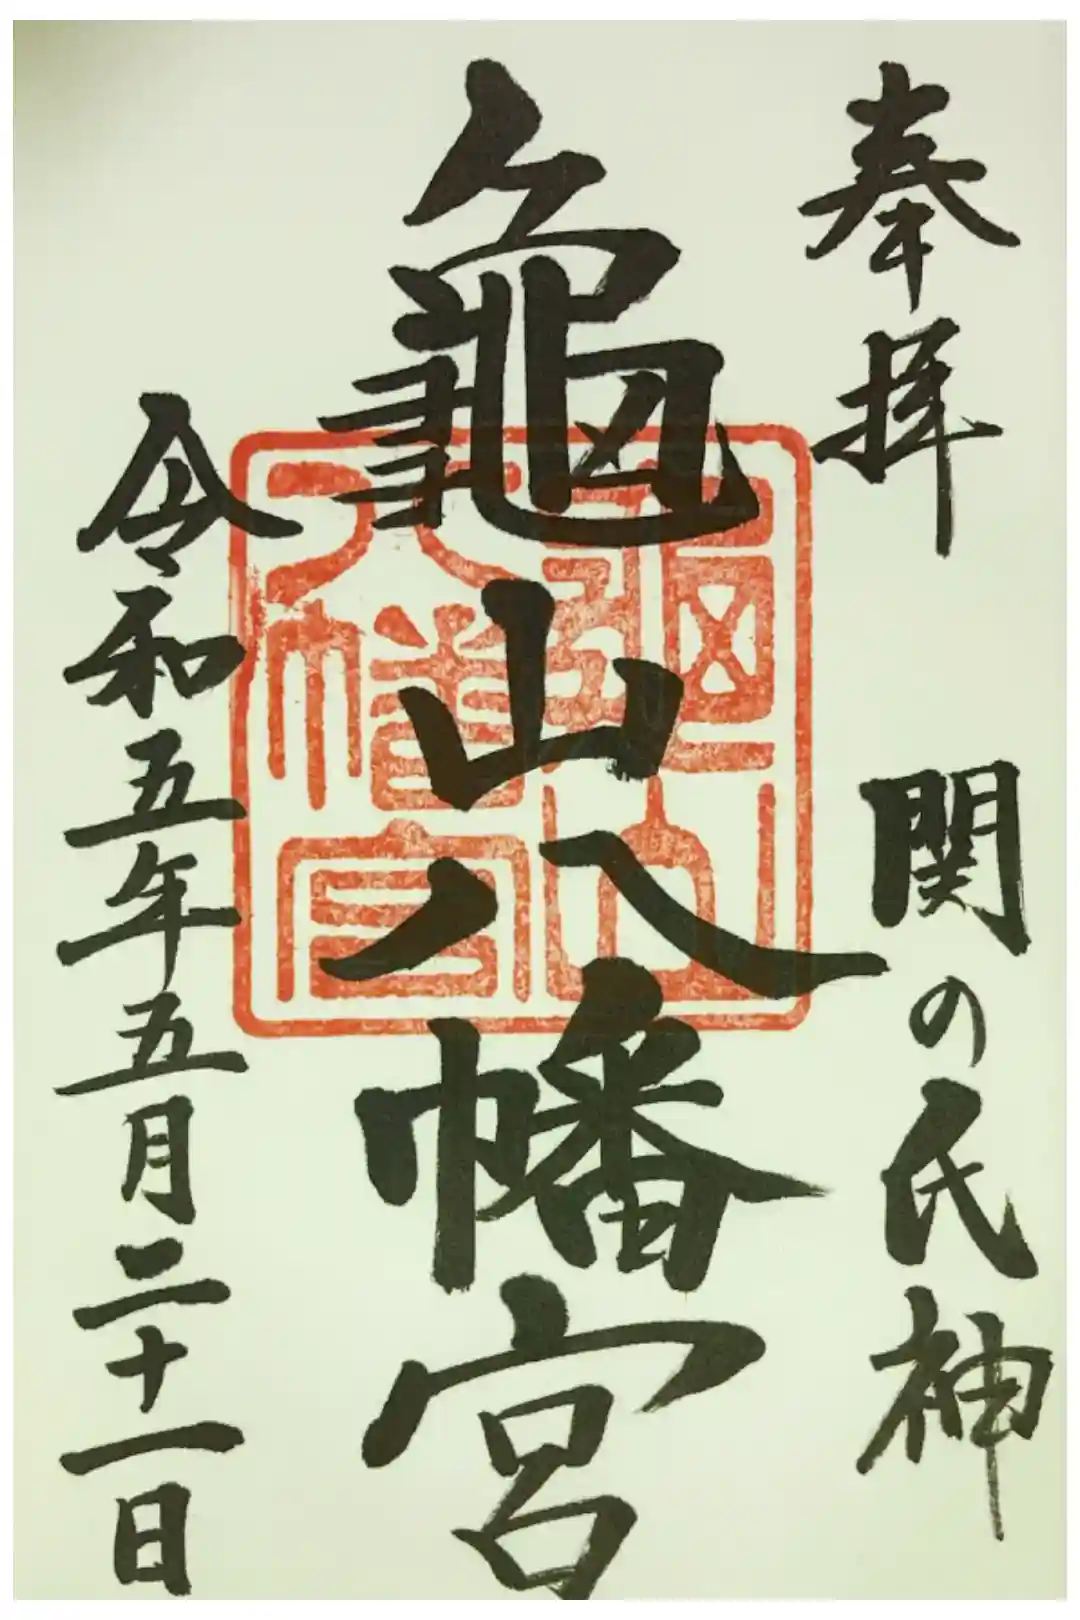 奉拝
関の氏神
龜山八幡宮
令和五年五月二十一日
龜山八幡宮